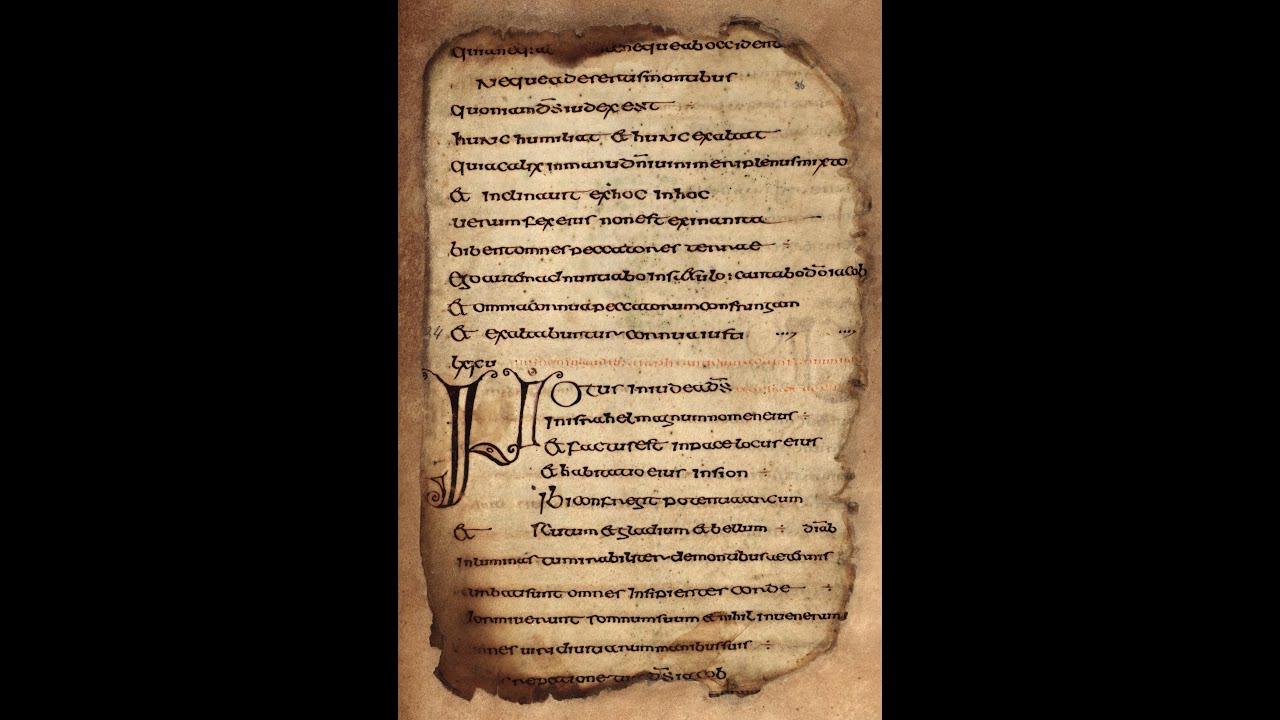 quianeq: neque ab occident
Neque a desertis montibus
quoniam d̄s iudex est ÷
hunc humiliat & hunc exaltat
quia calix in manu dn̄i uini meri plenus mixto
& inclinauit ex hoc in hoc
uerum fex eius non est exinanita
bibent omnes peccatores terrae ÷
Ego autē adnuntiabo in : cantabo dō iacob
& omnia cornua peccatorum confringam
& exaltabuntur cornua iusti
lxxu
Notus in iudea d̄s
in israhel magnum nomen eius ÷
& factus est in pace locus eius
& habitatio eius in sion ÷
Ibi confregit potentia arcum
& scutum & gladium & bellum ÷ diab
Inluminas tu mirabiliter de montibus
turbati sunt omnes insipientes corde ÷
dormierunt somnum suum & nihil inuenerunt
omnes uiri diuitiarum manibus suis ÷
d̄s iacob
36